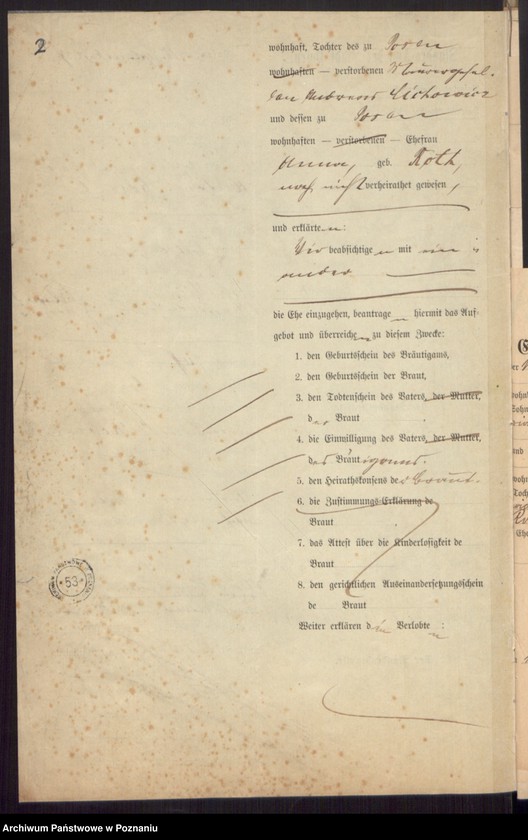 2
wohnhaft, Tochter des zu Posen
wohnhaften — verstorbenen
Cichowicz
und dessen zu Posen
wohnhaften — verstorbenen — Ehefrau
Anna, geb. Roth,
noch nicht verheirathet gewesen,
und erklärten:
Wir beabsichtigen mit ein
ander
die Ehe einzugehen, beantrage hiermit das Auf-
gebot und überreichen zu diesem Zwecke:
1. den Geburtsschein des Bräutigams,
2. den Geburtsschein der Braut,
3. den Todtenschein des Vaters, der Mutter,
der Braut
4. die Einwilligung des Vaters, der Mutter,
des Bräutigams.
5. den Heirathskonsens des
6. die Zustimmungs-Erklärung de
Braut
7. das Attest über die Kinderlosigkeit de
Braut
8. den gerichtlichen Auseinandersetzungsschein
de Braut
Weiter erklären die Verlobten:
53
Archiwum Państwowe w Poznaniu